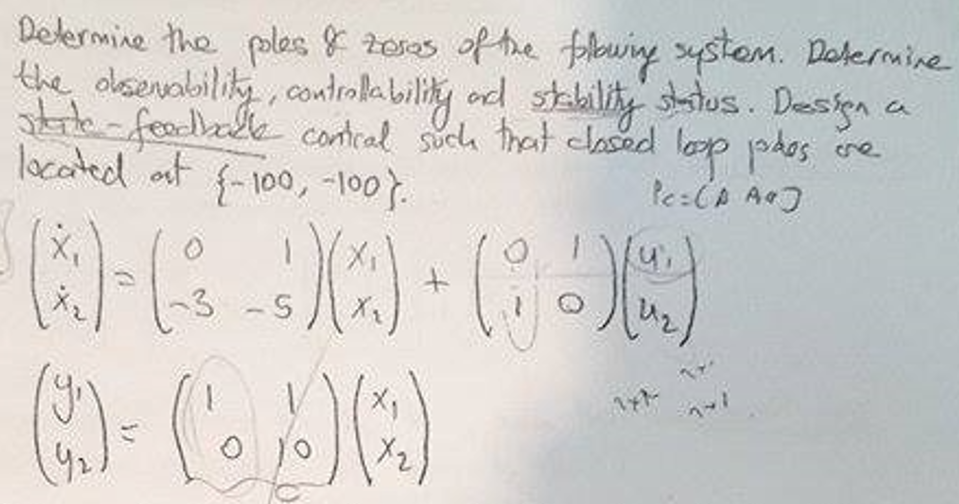 Determine the poles & zeros of the following system. Determine
the observability, controllability and stability status. Design a
state-feedback control such that closed loop poles are
located at {-100, -100}.
Pc=[B AB]
(ẋ₁ ẋ₂) = (0 1 -3 -5)(x₁ x₂) + (0 1 1 0)(u₁ u₂)
(y₁ y₂) = (1 1 0 0)(x₁ x₂)
C